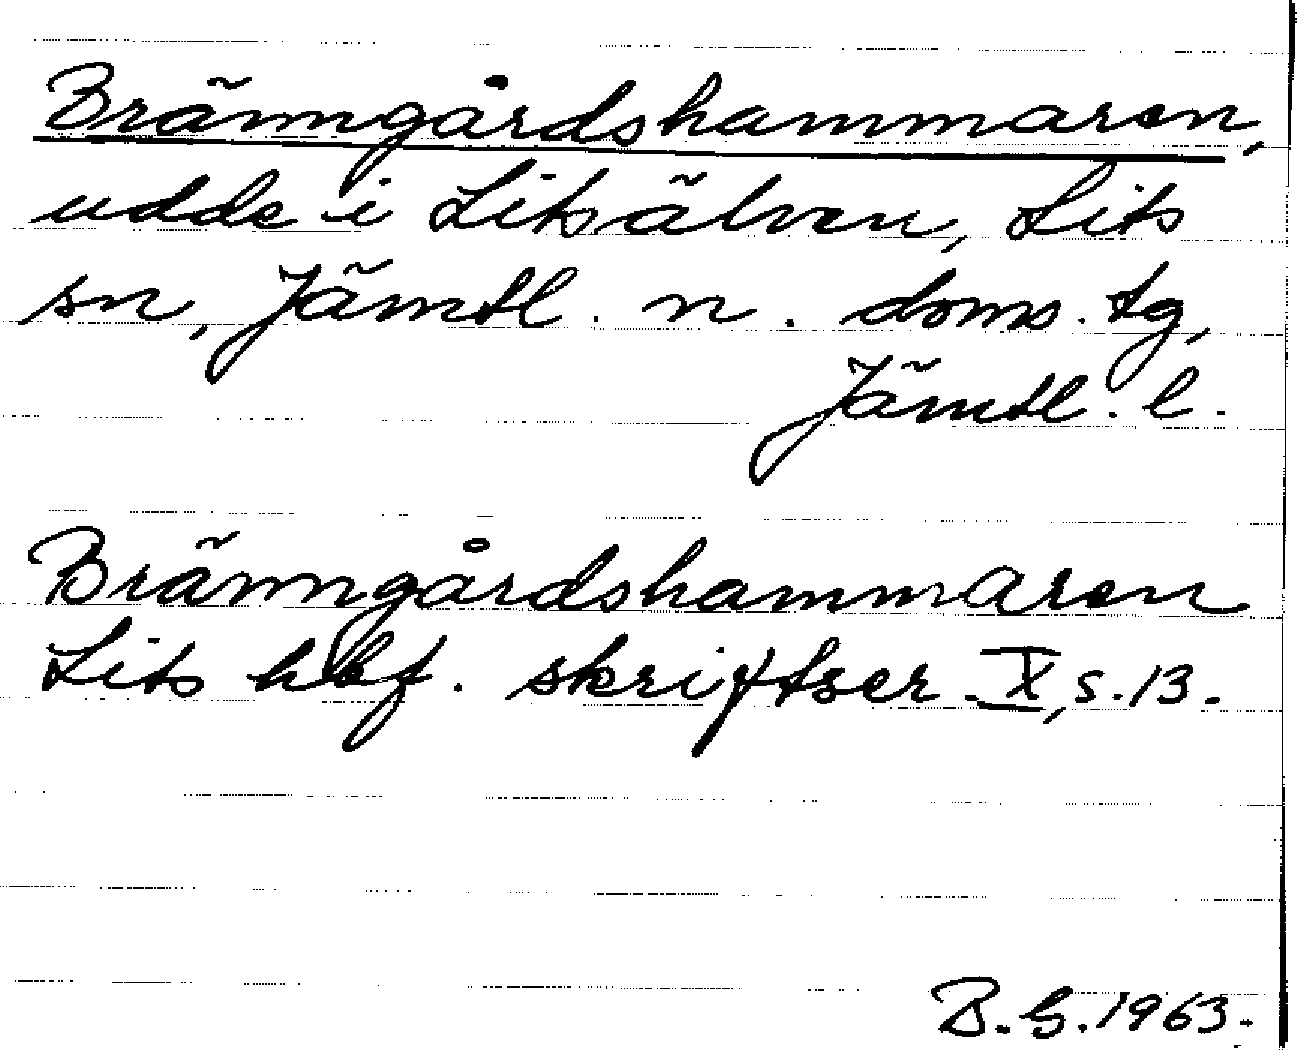 Bränngårdshammaren,
udde i Litsälven, Lits
sn, Jämtl. n. doms. tg,
Jämtl. l.
Bränngårdshammaren
Lits hbf. skriftser. X, s. 13.
B. G. 1963.